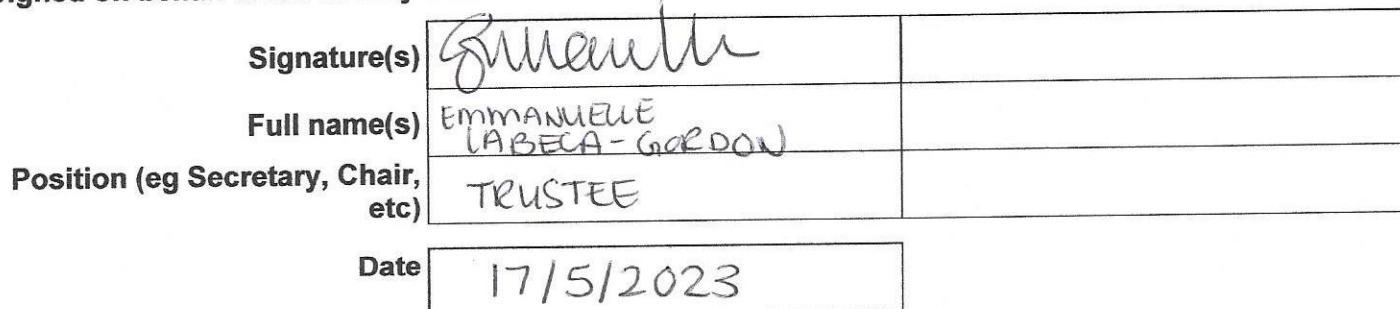 Signature(s)
Full name(s) EMMANUELLE
LABECA-GORDON
Position (eg Secretary, Chair,
etc) TRUSTEE
Date 17/5/2023